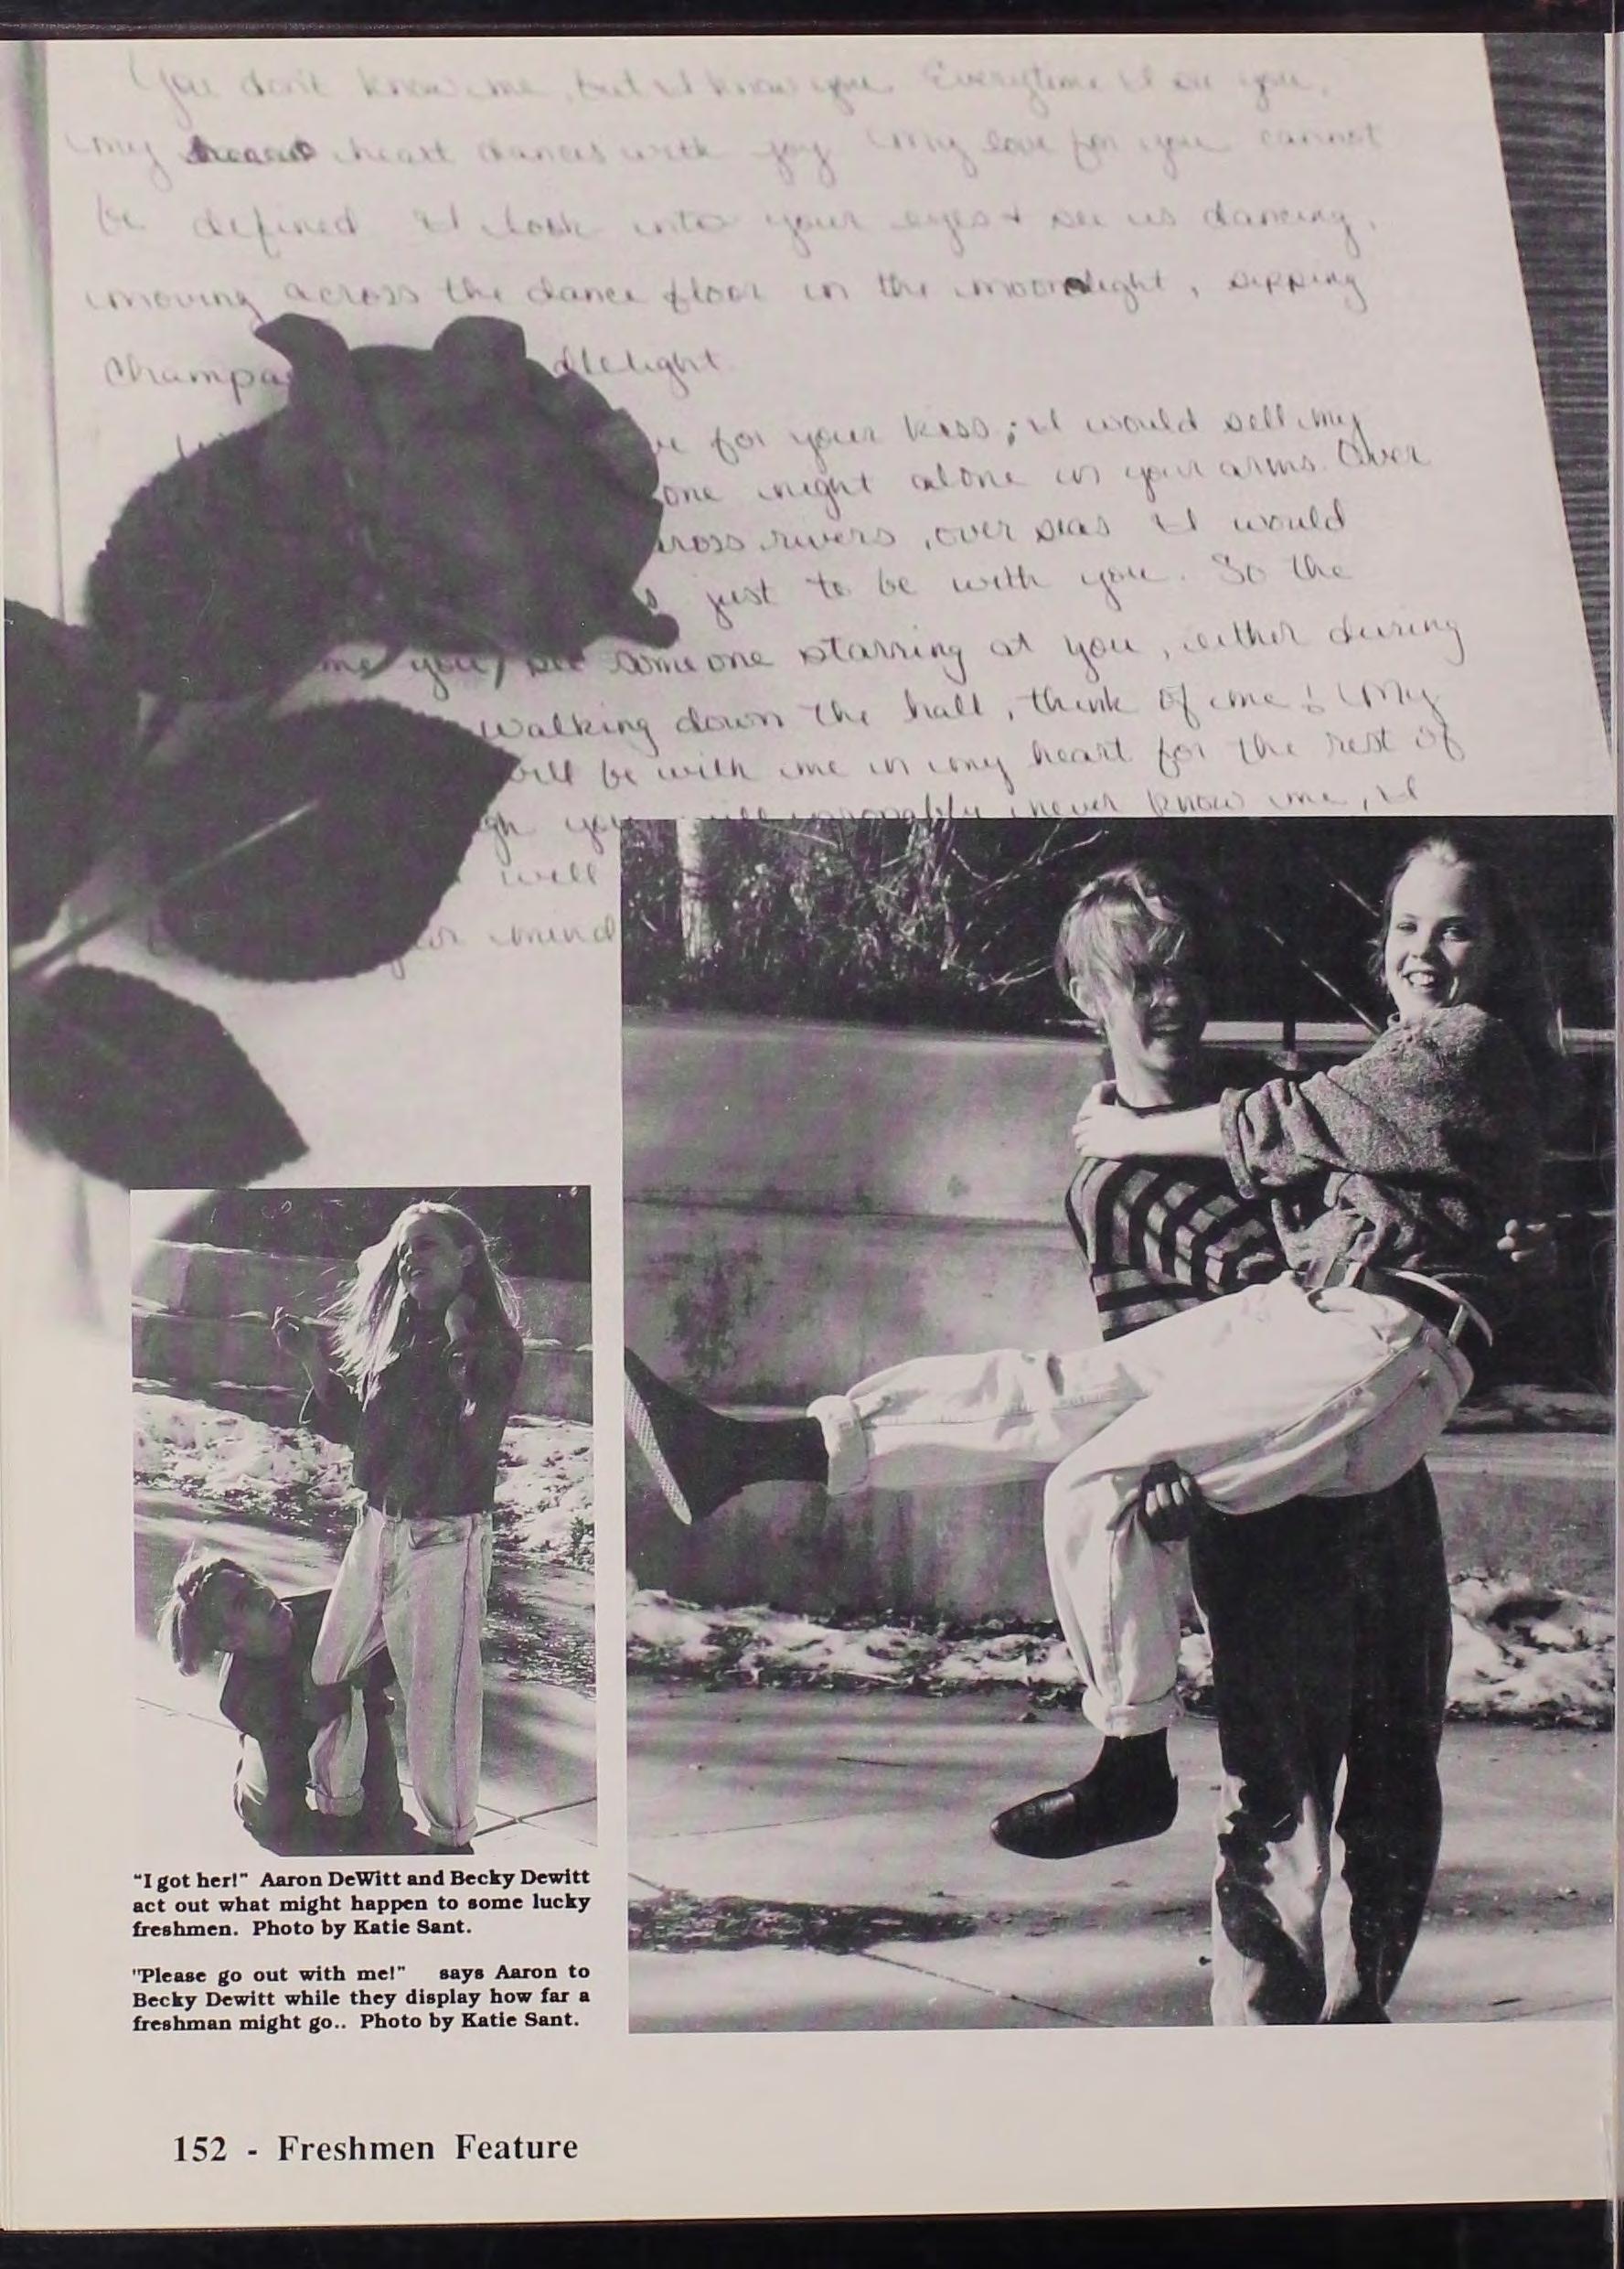 You don't know me, but I know you. Everytime I see you,
my heart dances with joy My love for you cannot
be defined I look into your eyes + see us dancing,
moving across the dance floor in the moonlight, sipping
champa dlelight.
for your kiss; I would sell my
one night alone in your arms. Over
ross rivers, over seas I would
s just to be with you. So the
me you see someone starring at you, either during
walking down the hall, think of me! My
ill be with me in my heart for the rest of
gh you will probably never know me, I
will
mind
"I got her!" Aaron DeWitt and Becky Dewitt
act out what might happen to some lucky
freshmen. Photo by Katie Sant.
"Please go out with me!" says Aaron to
Becky Dewitt while they display how far a
freshman might go.. Photo by Katie Sant.
152 - Freshmen Feature